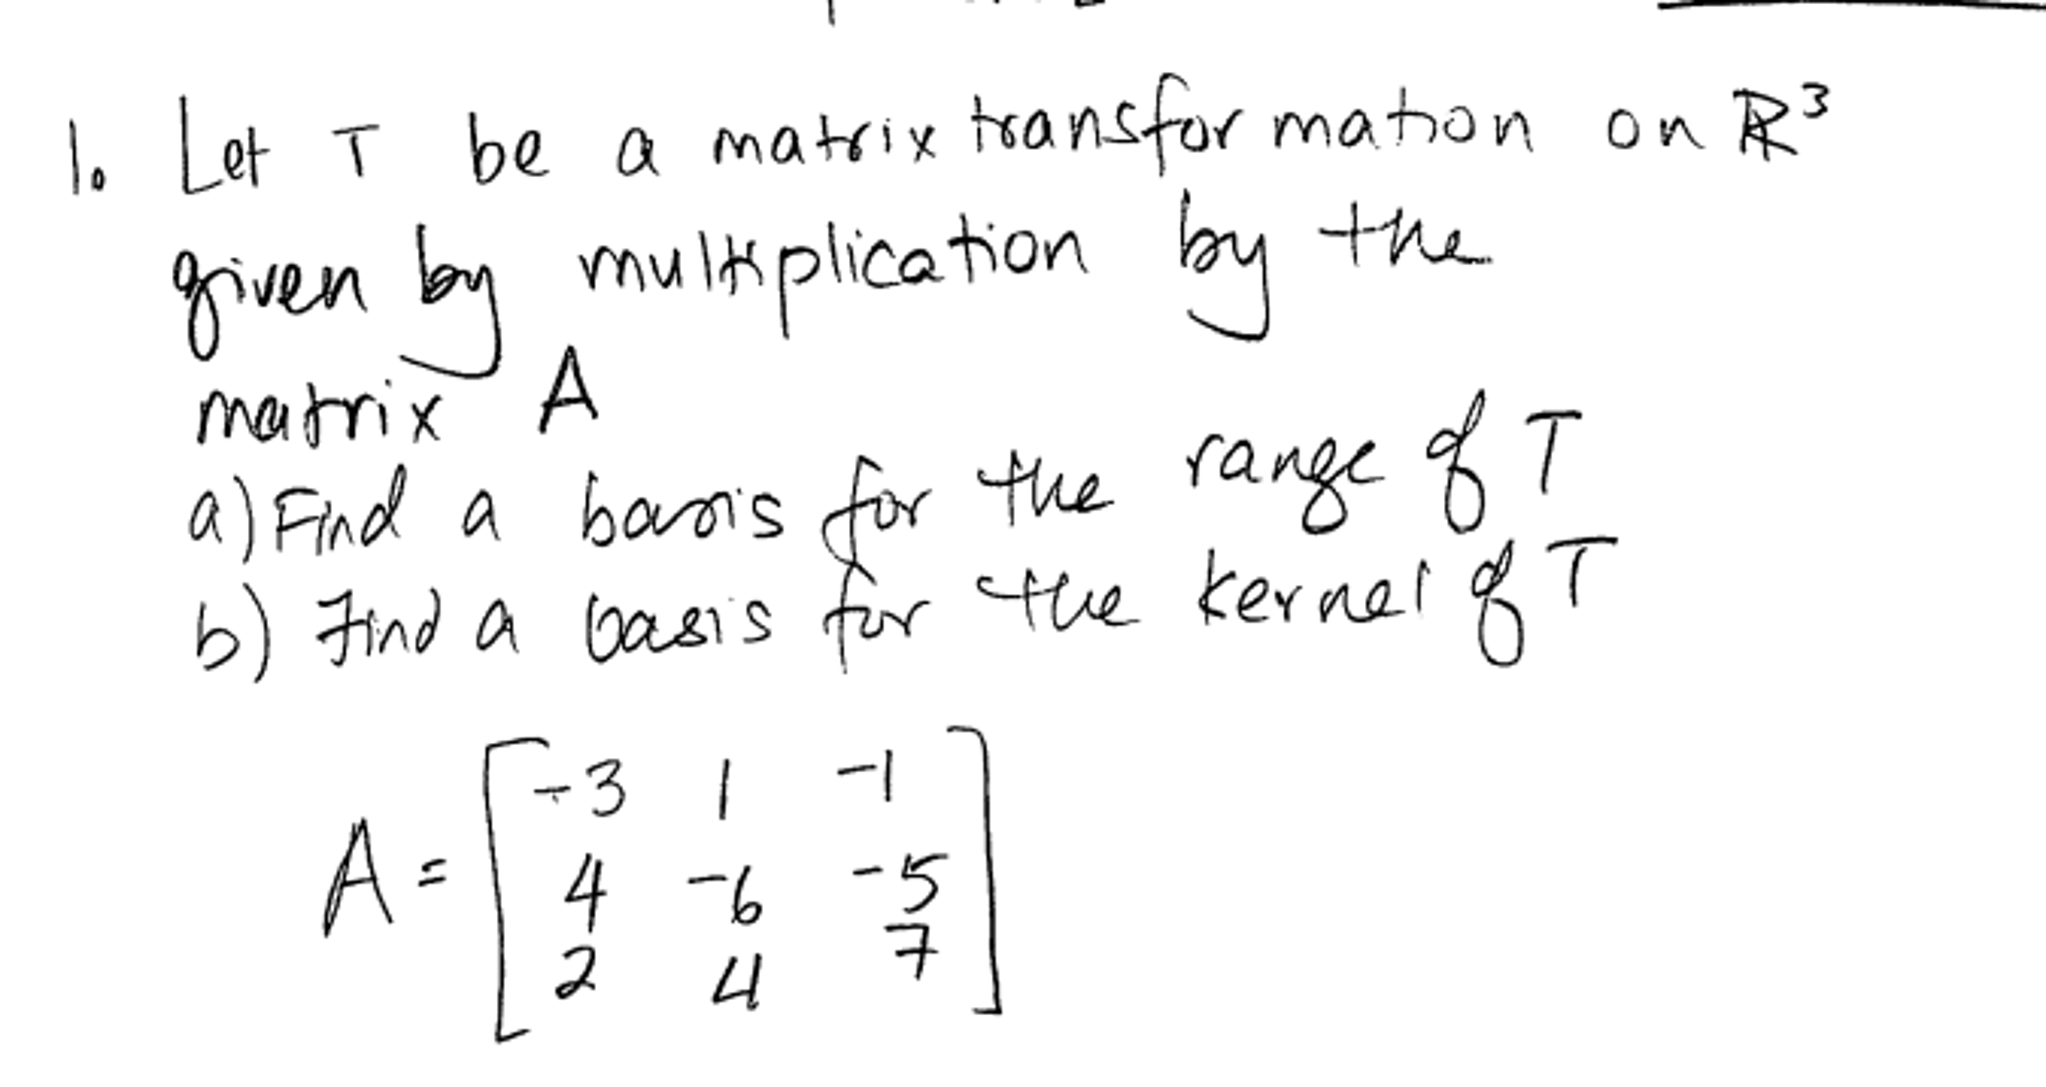 1. Let T be a matrix transformation on ℝ³
given by multiplication by the
matrix A
a) Find a basis for the range of T
b) Find a basis for the kernel of T
A = [ -3 1 -1
4 -6 -5
2 4 7 ]